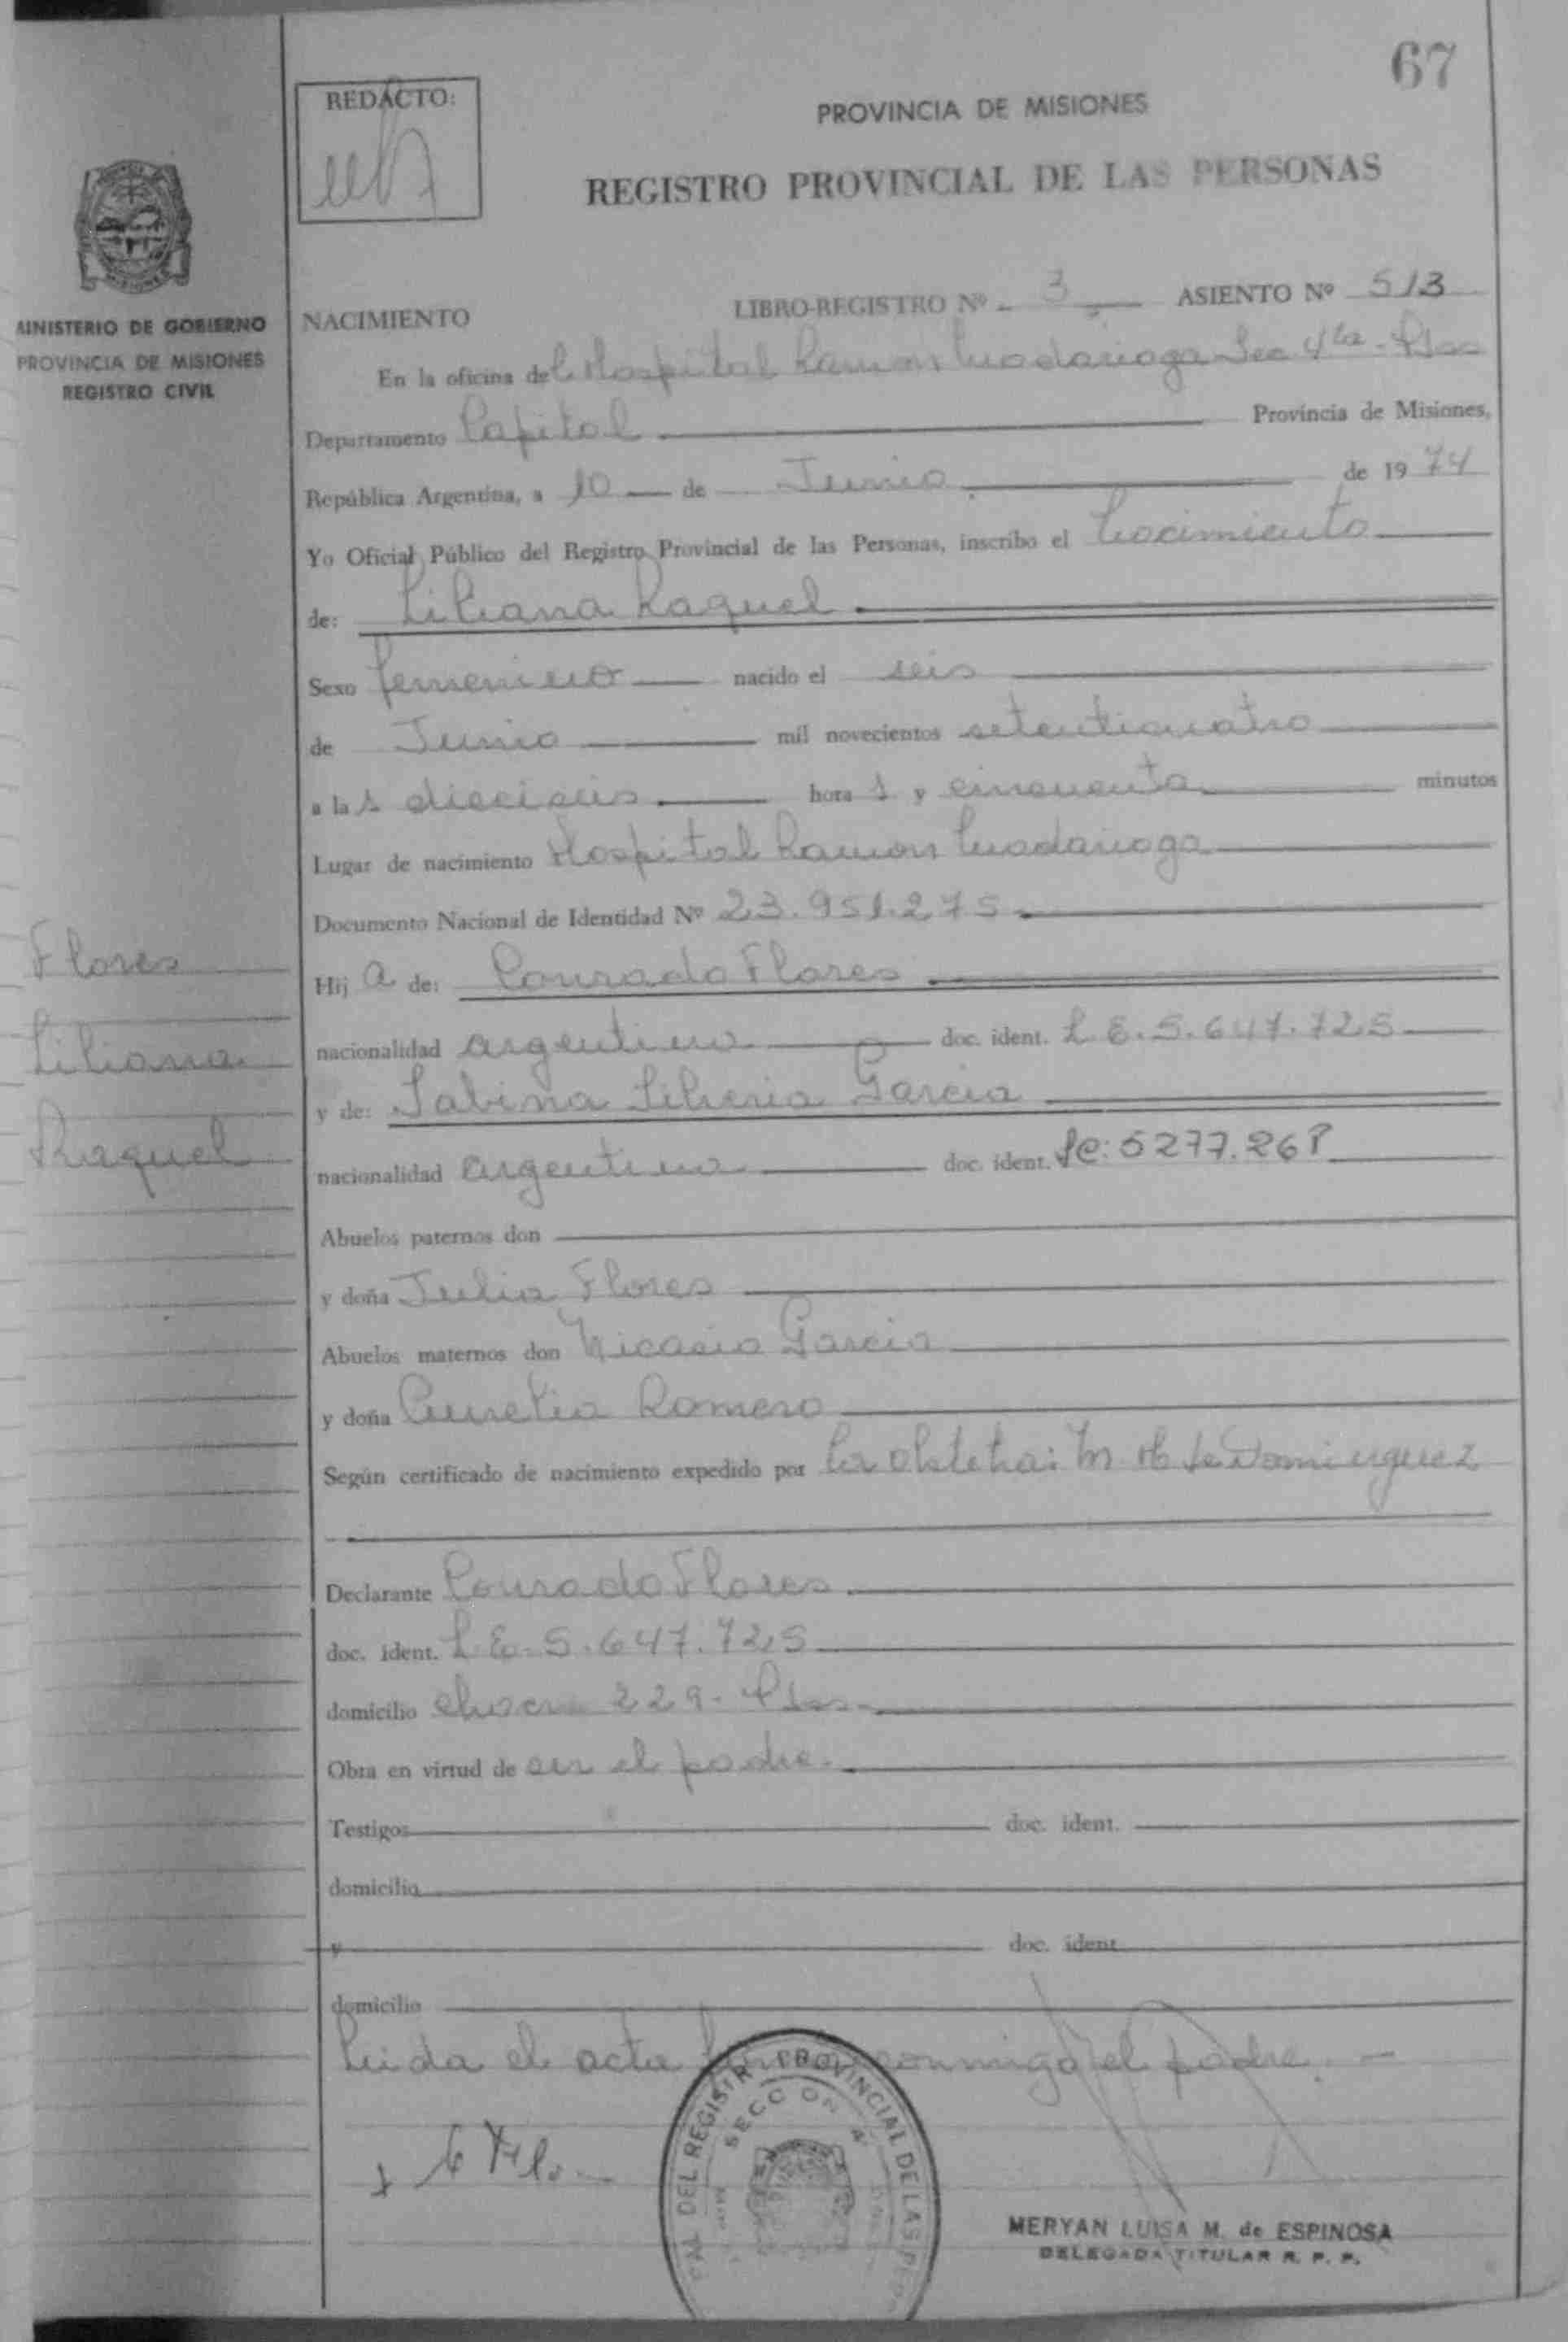 67
REDACTO:
PROVINCIA DE MISIONES
REGISTRO PROVINCIAL DE LAS PERSONAS
MINISTERIO DE GOBIERNO
PROVINCIA DE MISIONES
REGISTRO CIVIL
NACIMIENTO LIBRO-REGISTRO Nº 3 ASIENTO Nº 513
En la oficina del Hospital Ramon Madariaga Sec 4ta - Pdas
Departamento Capital Provincia de Misiones,
República Argentina, a 10 de Junio de 1974
Yo Oficial Público del Registro Provincial de las Personas, inscribo el Nacimiento
de: Liliana Raquel
Sexo femenino nacido el seis
de Junio mil novecientos setenticuatro
a las dieciseis horas y cincuenta minutos
Lugar de nacimiento Hospital Ramon Madariaga
Documento Nacional de Identidad Nº 23.951.275
Flores
Liliana
Raquel
Hija de: Conrado Flores
nacionalidad argentino doc. ident. L E. 5.647.725
y de: Sabina Silveria Garcia
nacionalidad argentina doc. ident. LC: 5277.268
Abuelos paternos don
y doña Julia Flores
Abuelos maternos don Nicasio Garcia
y doña Aurelia Romero
Según certificado de nacimiento expedido por la Obstetra: M H de Dominguez
Declarante Conrado Flores
doc. ident. L E. 5.647.725
domicilio 229 - Pdas
Obra en virtud de ser el padre.
Testigos doc. ident.
domicilio
y doc. ident.
domicilio
Leida el acta firma conmigo el padre. -
REGISTRO PROVINCIAL DE LAS
SECCION 4
MERYAN LUISA M. de ESPINOSA
DELEGADA TITULAR R. P. P.